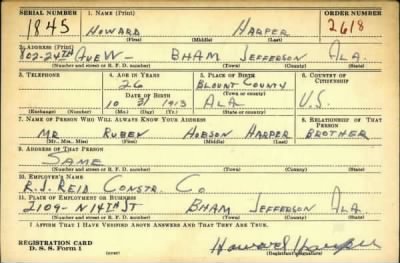 SERIAL NUMBER 1. NAME (Print) ORDER NUMBER
1845 HOWARD HARPER 2618
(First) (Middle) (Last)
2. ADDRESS (Print)
802-24TH AVE W- BHAM JEFFERSON ALA.
(Number and street or R. F. D. number) (Town) (County) (State)
3. TELEPHONE 4. AGE IN YEARS 5. PLACE OF BIRTH 6. COUNTRY OF CITIZENSHIP
26 BLOUNT COUNTY
DATE OF BIRTH (Town or county)
10 31 1913 ALA U.S.
(Exchange) (Number) (Mo.) (Day) (Yr.) (State or country)
7. NAME OF PERSON WHO WILL ALWAYS KNOW YOUR ADDRESS 8. RELATIONSHIP OF THAT PERSON
MR RUBEN HOBSON HARPER BROTHER
(Mr., Mrs., Miss) (First) (Middle) (Last)
9. ADDRESS OF THAT PERSON
SAME
(Number and street or R. F. D. number) (Town) (County) (State)
10. EMPLOYER'S NAME
R.J. REID CONSTR. CO
11. PLACE OF EMPLOYMENT OR BUSINESS
2109- N 14TH ST BHAM JEFFERSON ALA.
(Number and street or R. F. D. number) (Town) (County) (State)
I AFFIRM THAT I HAVE VERIFIED ABOVE ANSWERS AND THAT THEY ARE TRUE.
REGISTRATION CARD
D. S. S. Form 1 Howard Harper
(Registrant's signature)